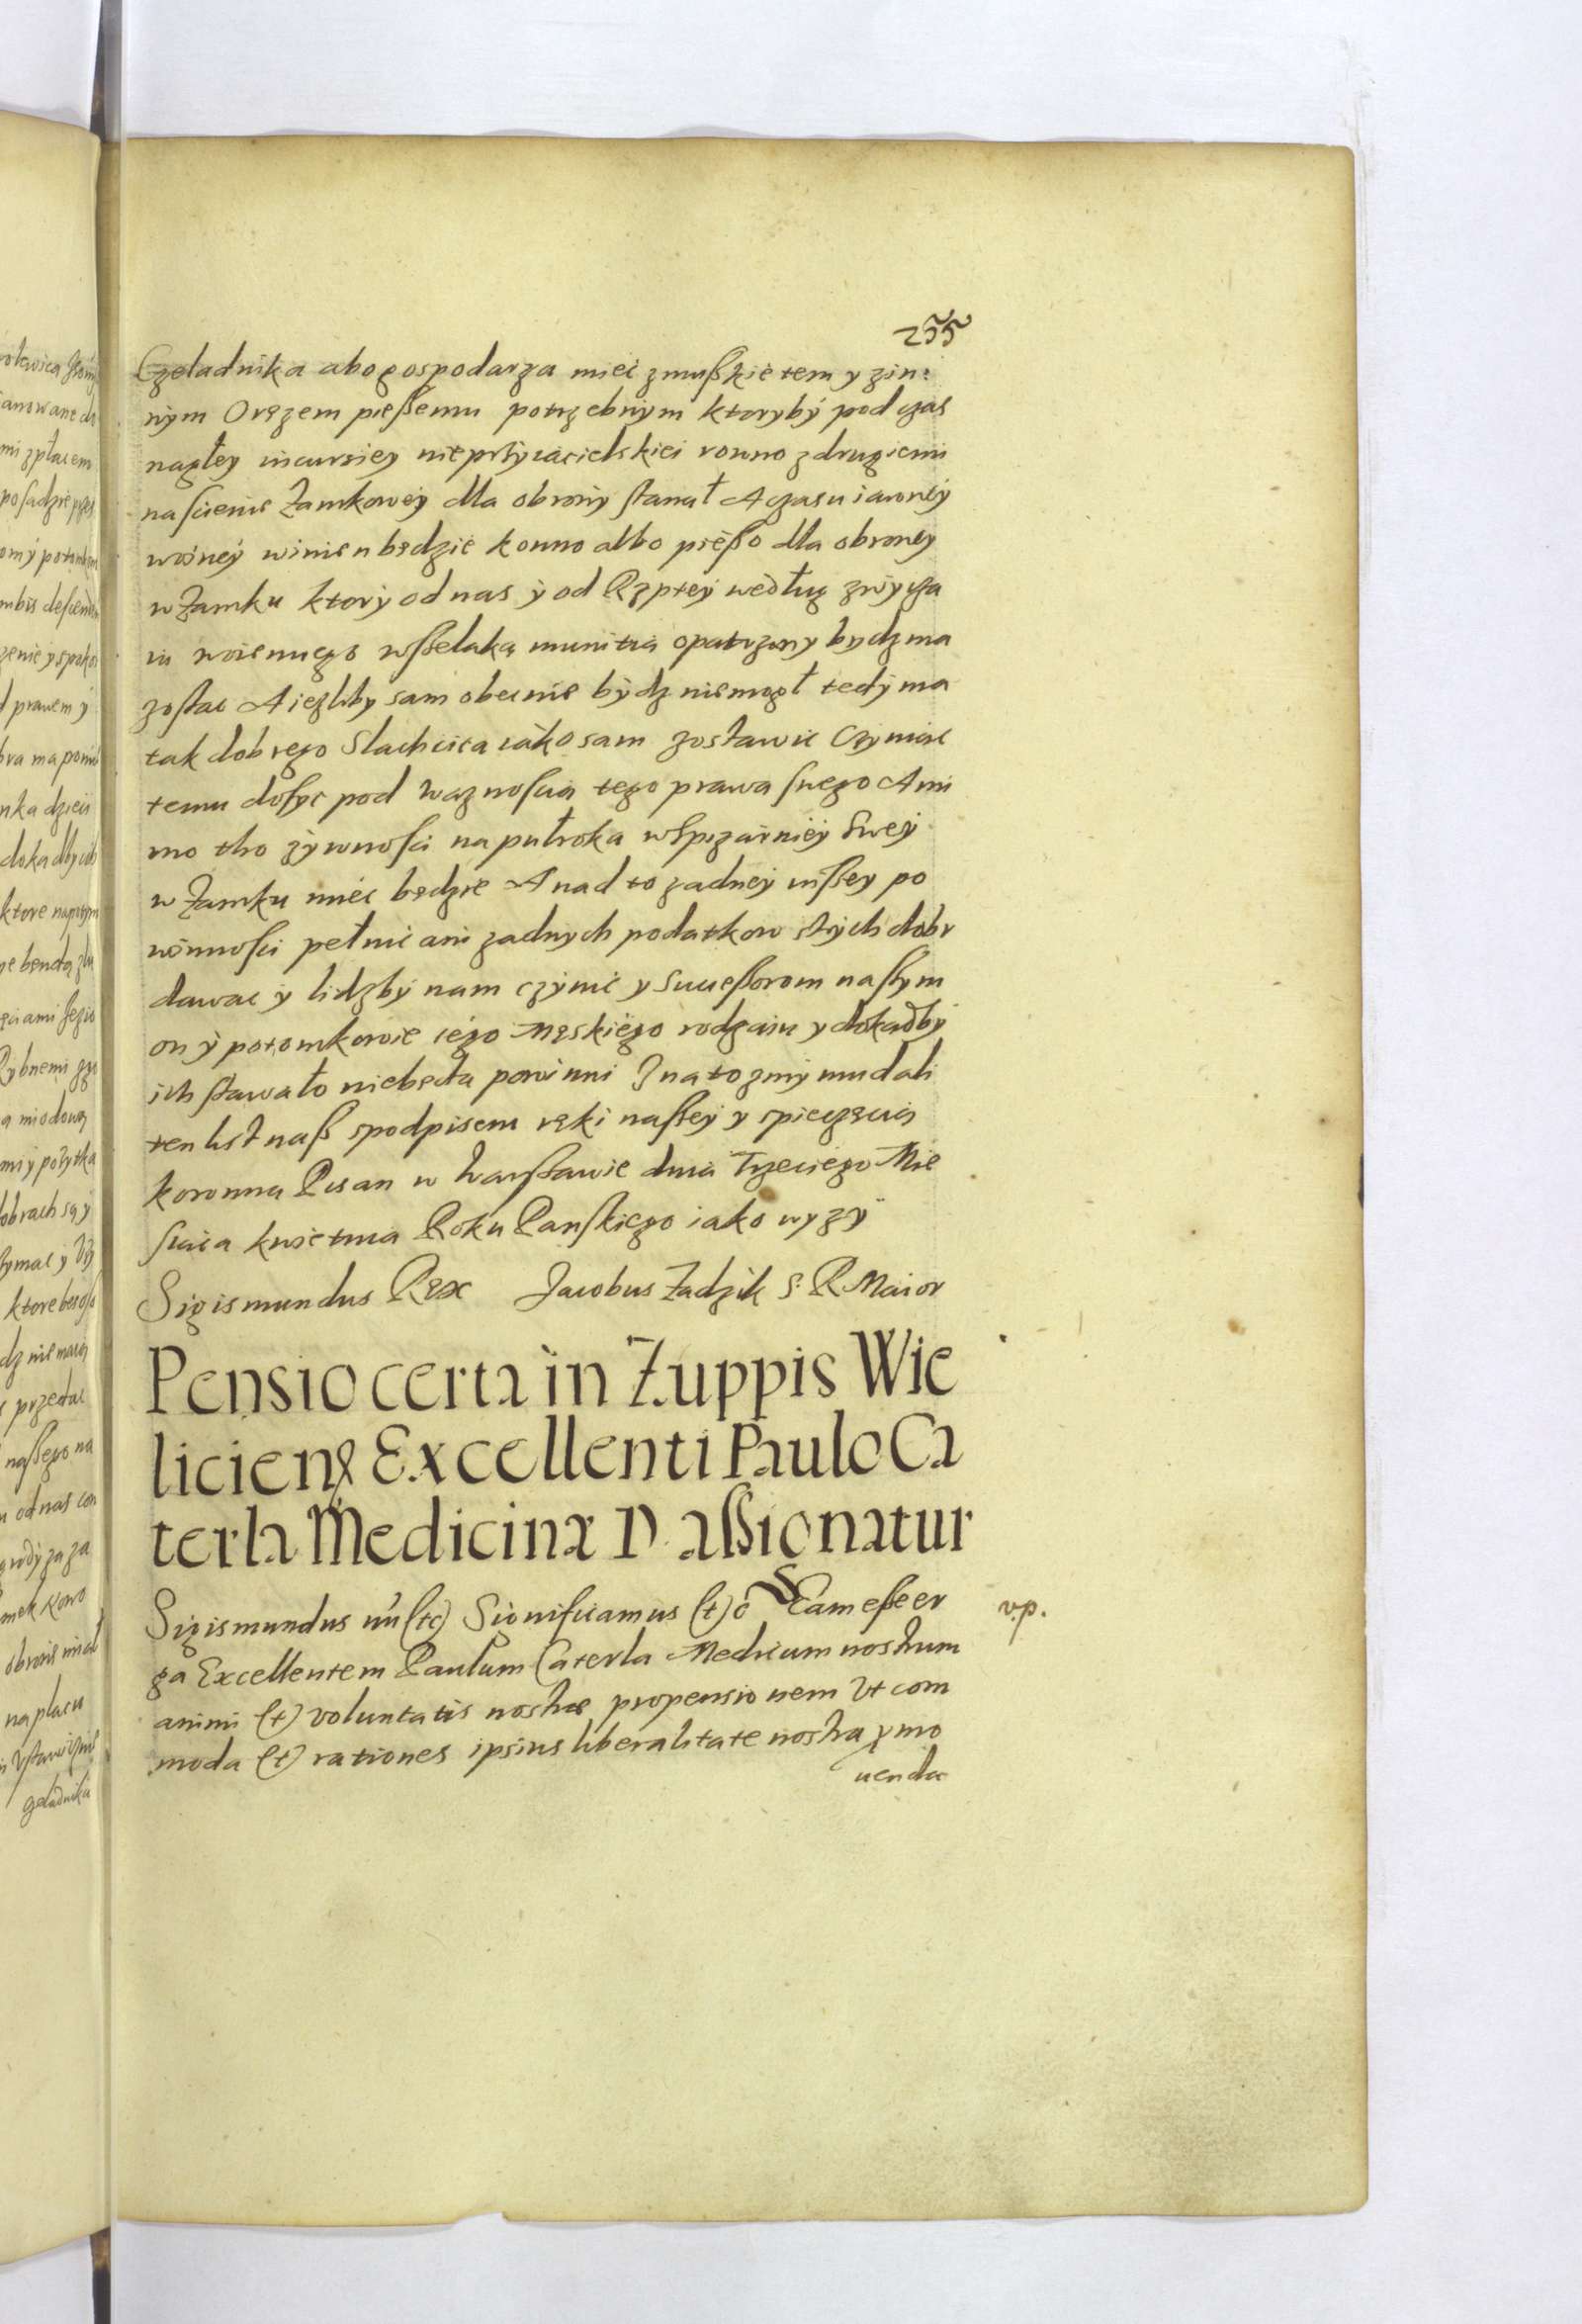 255
Czeladnika abo gospodarza mieć zmußkietem y zin:
nym Orężem pießemu potrzebnym ktoryby pod czas
nagłey incursiey nieprzyiacielskiei rowno zdrugiemi
na scienie Zamkowey dla obrony stanął A czasu iawney
woiney winien będzie konno albo pießo dla obroney
w Zamku ktory od nas y od Rzptey według zwycza
iu woiennego wßelaką munitią opatrzony bydz ma
zostac A iezliby sam obecnie bydz niemogł tedy ma
tak dobrego Slachcica iako sam zostawic Czyniąc
temu dosyc pod waznoscią tego prawa swego A mi
mo tho zywnosci na pułroka wspizarniey Swey
w Zamku miec będzie A nad to zadney inßey po
winnosci pełnic ani zadnych podatkow stych dobr
dawac y lidzby nam czynic y Succeßorom naßym
on y potomkowie iego Męskiego rodzaiu y dokadby
ich stawało niebędą powinni Ina to zmy mu dali
ten list naß spodpisem ręki naßey y spieczęcią
koronną Pisan w Warßawie dnia Trzeciego Mie
siąca kwietnia Roku Panskiego iako wyzy
Sigismundus Rex Jacobus Zadzik S. R. Maior
Pensio certa in Zuppis Wie
liciens Excellenti Paulo Ca
terla Medicinæ D. aßignatur
Sigismundus III (etc) Significamus (et) c Eam eße er
ga Excellentem Paulum Caterla Medicum nostrum
animi (et) voluntatis nostræ propensionem Vt com
moda (et) rationes ipsius liberalitate nostra pmo
uenda
v.p.